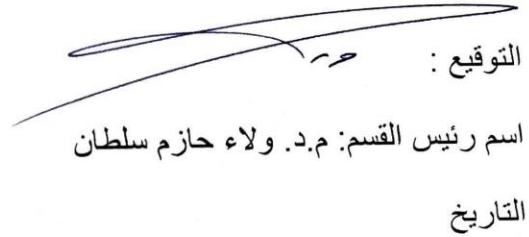 التوقيع :
اسم رئيس القسم: م.د. ولاء حازم سلطان
التاريخ